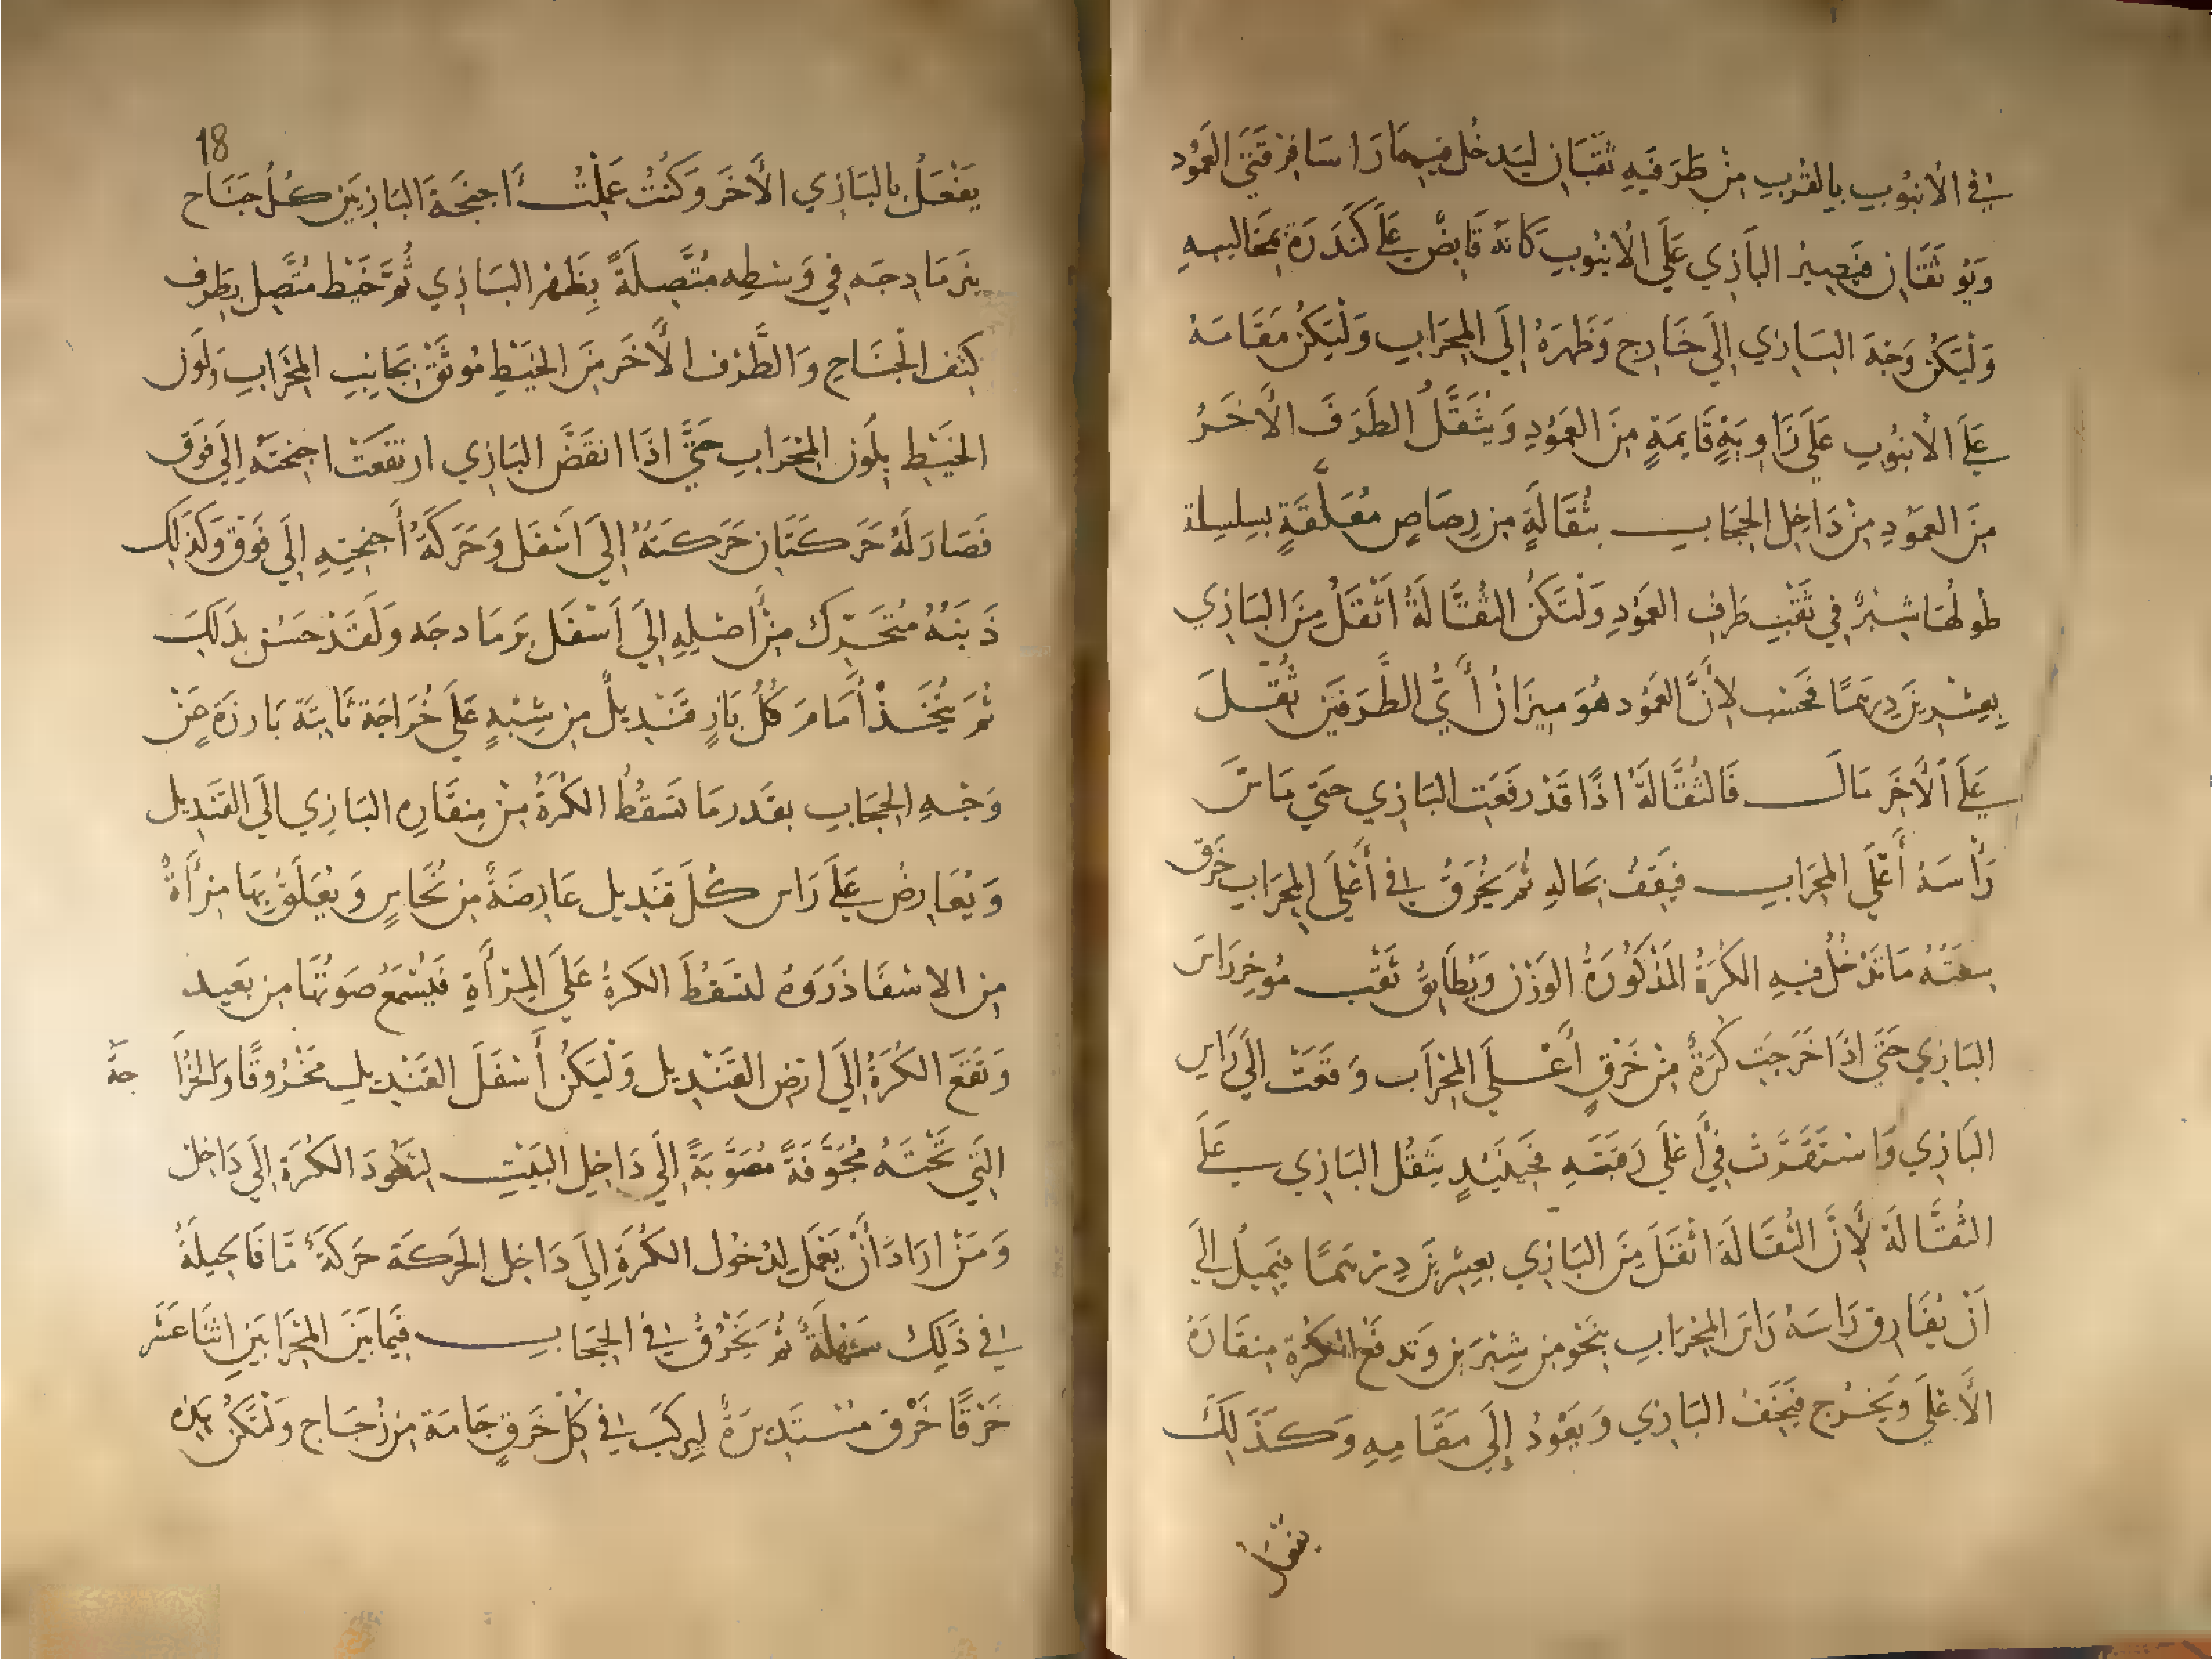 في الأنبُوبِ بِالقُربِ مِنْ طَرَفَيهِ ثُقبَانِ ليَدخُل فِيهمَا رَاسَا فرْقَتَي العَمُود
وَيُوثَقَانِ فَيَصِيرُ البَازِي عَلَى الأنبُوبِ كَانهُ قَابِضٌ عَلَى كَنَدَرَةٍ بمَخَاليبِهِ
وَلْيَكُنْ وَجْهُ البَازِي إلَى خَارِج وَظَهرَهُ إلَى المِحرَابِ وَلْيَكُنْ مَقَامَهُ
عَلَى الأنبُوبِ عَلَى زَاوِيَةٍ قَايِمَةٍ مِنَ العَمُودِ وَيُثَقَّلُ الطَرَفَ الأخَرُ
مِنَ العَمُودِ مِنْ دَاخِلِ الحِجَابِ بثُقَالَةٍ مِن رِصَاصٍ مُعَلَّقَةٍ بسِلسِلة
طُولُهَا شِبْرٌ في ثَقْبِ طَرَفِ العَمُودِ وَلْتَكُنُ الثُقَّالَةُ أثْقَلُ مِنَ البَازِي
بِعِشْرِينَ دِرهَمًا فَحَسْب لأِنَّ العَمُود هُوَ مِيزَانُ أَيُّ الطَّرَفَيَن ثُقّلَ
عَلَى الأَخَرِ مَالَ فَالثُقَّالَةُ اذًا قَدْ رفَعَتِ البَازِي حَتَّى مَاسَّ
رَأسَهُ أَعْلَى المِحرَابِ فيَقَفُ بحَالِهِ ثُمَّ يُخرَقُ في أَعْلَى المِحرَابِ خَرَق
سِعَتُهُ مَا تَدْخُلُ فِيهِ الكُرَةُ المَذكُورَةُ الوَزْنِ وَيُطَابِقُ ثَقْبَ مُوخِرِ رَاسَ
البَازِي حَتَّى اذَا خَرَجَت كُرَةٌ مِنْ خَرْقِ أعْلَى المِحْرَاب وَقَعَتْ الَى رَاسِ
البَازِي وَاسْتَقَرَّتْ في أعْلَى رَقَبَتِهِ فَحِينَيذٍ يَثقُل البَازِي عَلَى
الثُقَّالَةَ لأِنَّ الثُقَالَةَ اثْقَلَ مِنَ البَازِي بعِشْرِينَ دِرْهَمًا فيَمِيلُ الَى
أنْ يُفَارِقَ رَاسَهُ رَاسَ المِحْرَابِ بنَحْوٍ مِن شِبْرَين وَتَدفَعَ الكُرَةِ مِنقَارَهُ
الأَعْلَى وَيَخْرُج فيَخَفُّ البَازِي وَيَعُودُ إلَى مَقَامِهِ وَكَذَلِكَ
يفعل
18
يَفْعَلُ بالبَازِي الأَخَر وَكُنتُ عَمِلْتُ أَجنحَةَ البَازيَين كُلُ جَنَاح
بنَرمَادجَه في وَسْطِه مُتَّصِلَةً بِظَهْر البَازِي ثُمَّ خَيْط مُتَّصِل بِطَرَف
كتِف الجَنَاحِ وَالطَّرْف الأَخَر مِنَ الخَيْطِ مُوثَقٌ بجَانِبِ المِحْرَابِ وَلَون
الخَيْطِ بلَونِ المِحْرَابِ حَتَّى اذَا انقَضَّ البَازِي ارتفَعَتْ اجنحَتُه إلَى فَوقَ
فَصَارَ لَهُ حَرَكَتَانِ حَرَكَتهُ إلَى أسْفَل وَحَرَكَةُ أَجنِحَتِهِ إلَى فَوْق وَكَذَلِكَ
ذَنبَهُ مُتَحَرّك مِنْ أَصْلِهِ إلَى أسْفَل بنَرمَادجَه وَلَقَدْ حَسُن بذَلِكَ
ثُمَّ يُتَّخَذْ أَمَامَ كُلُ بَازٍ قَنْدِيلٌ مِن شِبْهٍ عَلَى خُرَاجَة ثَابتَة بَارزَة عِنْ
وَجْهِ الحِجَابِ بقَدرِ مَا تسْقُطُ الكُرَةُ مِنْ مِنقَارِ البَازِي الَى القَندِيل
وَيُعَارِضُ عَلَى رَاس كُلَّ قَندِيل عَارِضَةً مِن نُحَاسٍ وَيُعَلَّقُ بِهَا مِرْأةً
مِن الاسْفَاذرَوهُ لتَسقُطَ الكُرَةُ عَلَى المِرْأَةِ فَيُسْمَعُ صَوتُهَا مِن بَعِيد
وَتَقَعَ الكُرَةُ إلَى ارْضِ القَنْدِيل وَلْيَكُن أَسْفَلَ القَنْدِيل مَخْرُوقًا وَالخُرَّا جَةُ
التِي تَحْتَهُ مُجَوَّفَةً مُصَوَّبَةً إلَى دَاخِلِ البَيْتِ لتَعُودَ الكُرَةَ إلَى دَاخِل
وَمَنْ ارَادَ أَنْ يَعْمَل لِدُخُولِ الكُرَةِ إلَى دَاخِلِ الحَركَة حَرَكَةً مَّا فَالحِيلَةُ
في ذَلِكَ سَهْلَةٌ ثُمَّ يَخْرُقُ في الحِجَابِ فِيمَا بَيْنَ المِحْرَابَينِ اثنَا عَشَر
خَرْقًا خَرْقَ مُسْتَدِيرَةً لِيرَكبَ في كُلّ خَرقٍ جَامَة مِن زُجَاج وَلْتَكُن هَذِهِ